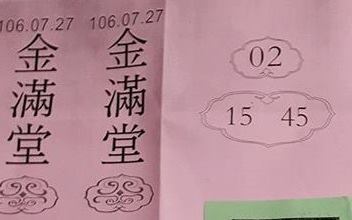 106.07.27 106.07.27
金滿堂
金滿堂
02
15 45